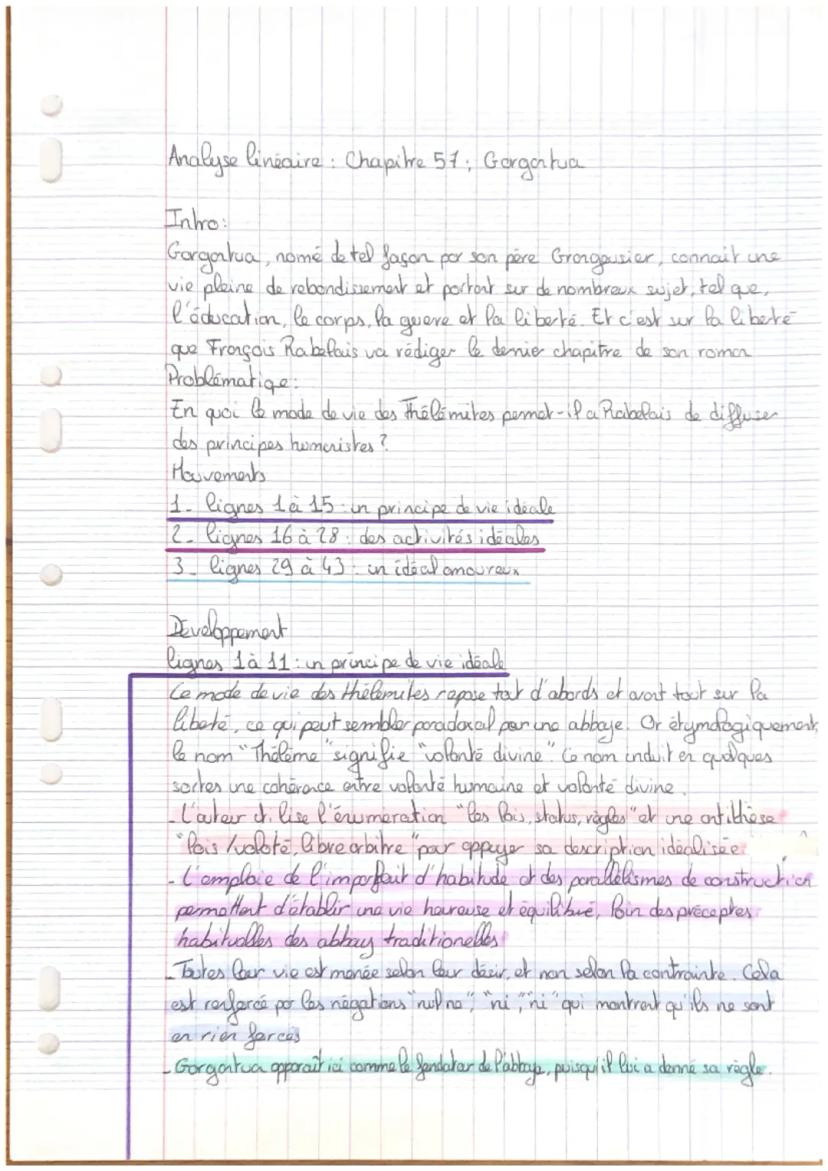 Analyse linéaire : Chapitre 57 ; Gargantua
Intro :
Gargantua, nomé de tel façon par son père Grangousier, connait une
vie pleine de rebondissement et portant sur de nombreux sujet, tel que,
l'éducation, le corps, la guerre et la liberté. Et c'est sur la liberté
que François Rabelais va rédiger le dernier chapitre de son roman
Problématique :
En quoi le mode de vie des Thélémites permet-il a Rabelais de diffuser
des principes humanistes ?
Mouvements
1 - lignes 1 à 15 : un principe de vie idéale
2 - lignes 16 à 28 : des activités idéales
3 - lignes 29 à 43 : un idéal amoureux
Développement
lignes 1 à 11 : un principe de vie idéale
Ce mode de vie des thélémites repose tout d'abords et avant tout sur la
liberté, ce qui peut sembler paradoxal par une abbaye. Or étymologiquement,
le nom "Thélème" signifie "volonté divine". Ce nom induit en quelques
sortes une cohérence entre volonté humaine et volonté divine.
- L'auteur utilise l'énumération "les lois, status, règles" et une antithèse
"lois / volonté, libre arbitre" pour appuyer sa description idéalisée
- L'emploie de l'imparfait d'habitude et des parallélismes de construction
permettent d'établir une vie heureuse et équilibré, loin des préceptes
habituelles des abbay traditionelles
- Toutes leur vie est menée selon leur désir, et non selon la contrainte. Cela
est renforcé par les négations "nul ne", "ni", "ni" qui montrent qu'ils ne sont
en rien forcés
- Gargantua apparait ici comme le fondateur de l'abbaye, puisqu'il lui a donné sa règle.